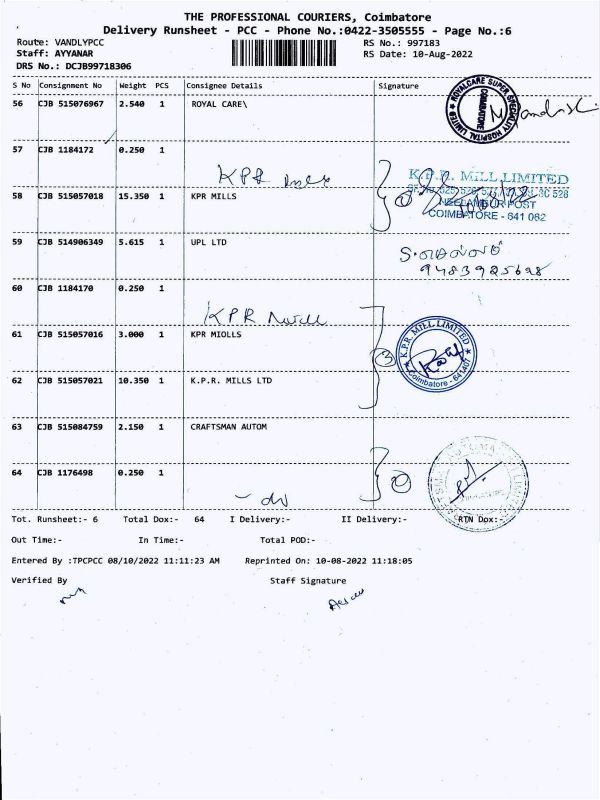 THE PROFESSIONAL COURIERS, Coimbatore
Delivery Runsheet - PCC - Phone No.:0422-3505555 - Page No.:6
Route: VANDLYPCC RS No.: 997183
Staff: AYYANAR RS Date: 10-Aug-2022
DRS No.: DCJB99718306
S No Consignment No Weight PCS Consignee Details Signature
56 CJB 515076967 2.540 1 ROYAL CARE\
ROYALCARE SUPER SPECIALITY HOSPITAL LIMITED COIMBATORE
57 CJB 1184172 0.250 1
KPR
K.P.R. MILL LIMITED
58 CJB 515057018 15.350 1 KPR MILLS
NEELAMBUR POST
COIMBATORE - 641 062
59 CJB 514906349 5.615 1 UPL LTD
60 CJB 1184170 0.250 1
KPR
61 CJB 515057016 3.000 1 KPR MIOLLS
K.P.R. MILL LIMITED
Coimbatore - 641407
62 CJB 515057021 10.350 1 K.P.R. MILLS LTD
63 CJB 515084759 2.150 1 CRAFTSMAN AUTOM
64 CJB 1176498 0.250 1
Tot. Runsheet:- 6 Total Dox:- 64 I Delivery:- II Delivery:- RTN Dox:-
Out Time:- In Time:- Total POD:-
Entered By :TPCPCC 08/10/2022 11:11:23 AM Reprinted On: 10-08-2022 11:18:05
Verified By Staff Signature